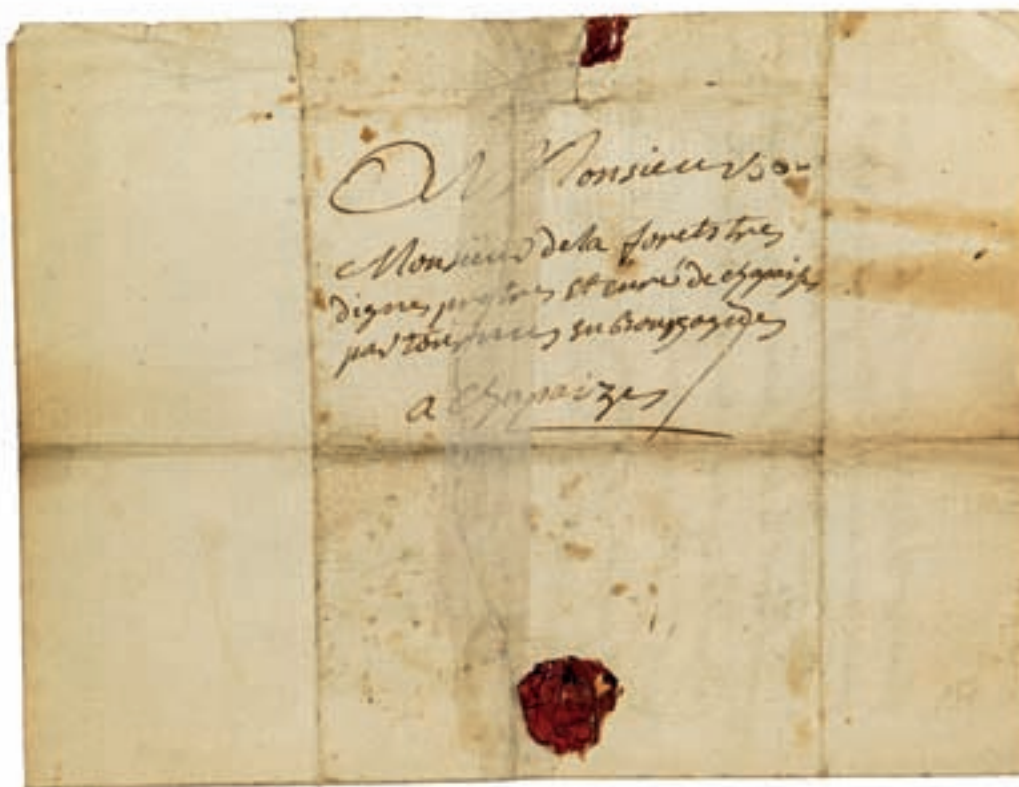 A Monsieur
Monsieur de la forets tres
dignes prestres et curé de chapaize
par tournus en Bourgognes
a Chapaizes